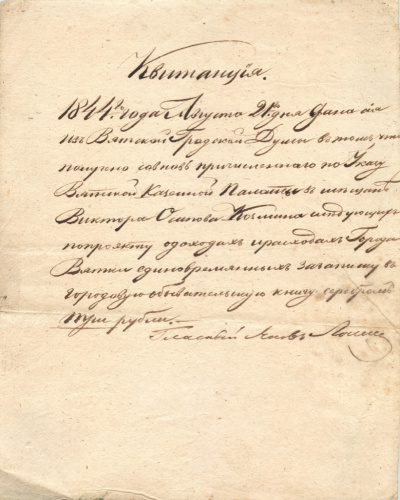 Квитанція.
1844го года Августа 21 дня Дана сія
изъ Вятской Градской Думы въ томъ что
получено со вновь причисленнаго по Указу
Вятской Казенной Палаты въ мещане
Виктора Осипова следующихъ
по проэкту о доходахъ и расходахъ Города
Вятки единовременныхъ за записку въ
городовую обывательскую книгу серебромъ
три рубли.
Гласный Яковъ